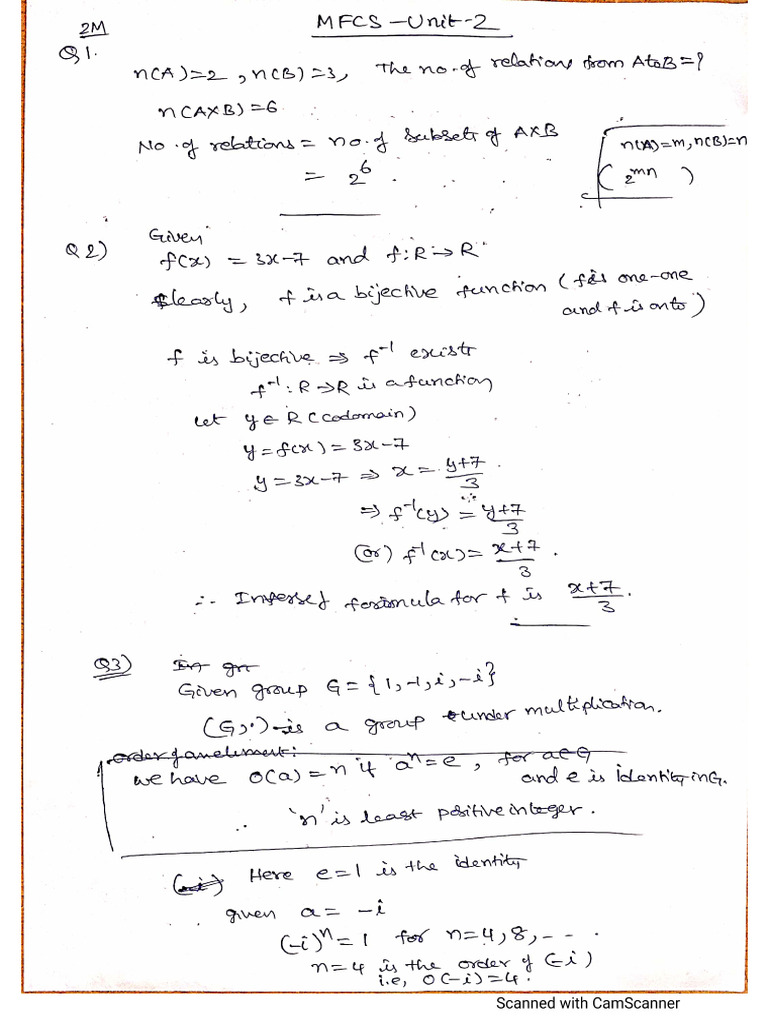 2M
MFCS - Unit-2
Q1.
n(A)=2, n(B)=3, The no. of relations from A to B=?
n(A×B)=6
No. of relations = no. of subsets of A×B
= 2^6.
n(A)=m, n(B)=n
(2^mn)
Q2) Given
f(x) = 3x-7 and f:R→R
clearly, f is a bijective function (f is one-one
and f is onto)
f is bijective ⇒ f^-1 exists
f^-1: R→R is a function
let y∈R (codomain)
y=f(x)=3x-7
y=3x-7 ⇒ x = (y+7)/3.
⇒ f^-1(y) = (y+7)/3
(or) f^-1(x) = (x+7)/3.
∴ Inversed formula for f is (x+7)/3.
Q3)
Given group G={1,-1,i,-i}
(G,·) is a group under multiplication.
order of an element:
we have O(a)=n if a^n=e, for a∈G
and e is identity in G.
'n' is least positive integer.
Here e=1 is the identity
given a= -i
(-i)^n=1 for n=4,8,---.
n=4 is the order of (-i)
i.e, O(-i)=4.
Scanned with CamScanner